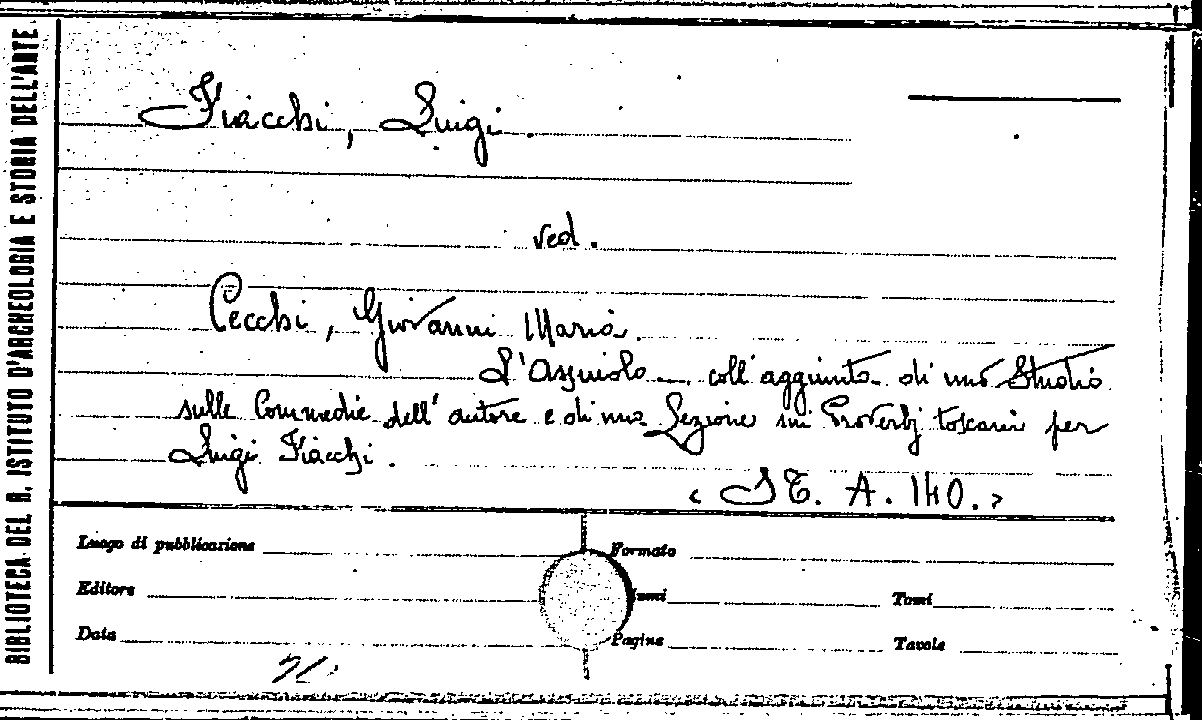 BIBLIOTECA DEL R. ISTITUTO D'ARCHEOLOGIA E STORIA DELL'ARTE
Fiacchi, Luigi.
ved.
Cecchi, Giovanni Maria.
L'Assiuolo — coll'aggiunta di uno Studio
sulle Commedie dell'autore e di una Lezione sui Proverbj toscani per
Luigi Fiacchi.
< ST. A. 140. >
Luogo di pubblicazione
Formato
Editore
umi
Tomi
Data
Pagine
Tavole